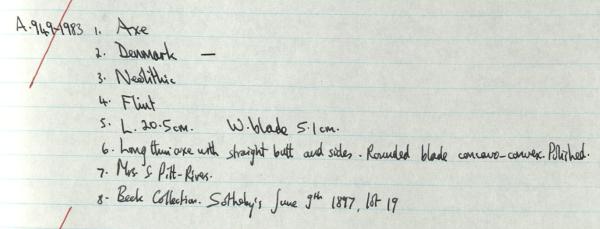 A.949-1983 1. Axe
2. Denmark —
3. Neolithic
4. Flint
5. L. 20.5cm. W. blade 5.1cm.
6. Long thin axe with straight butt and sides. Rounded blade concavo-convex. Polished.
7. Mrs S Pitt-Rivers.
8. Beck Collection. Sotheby's June 9th 1897, lot 19